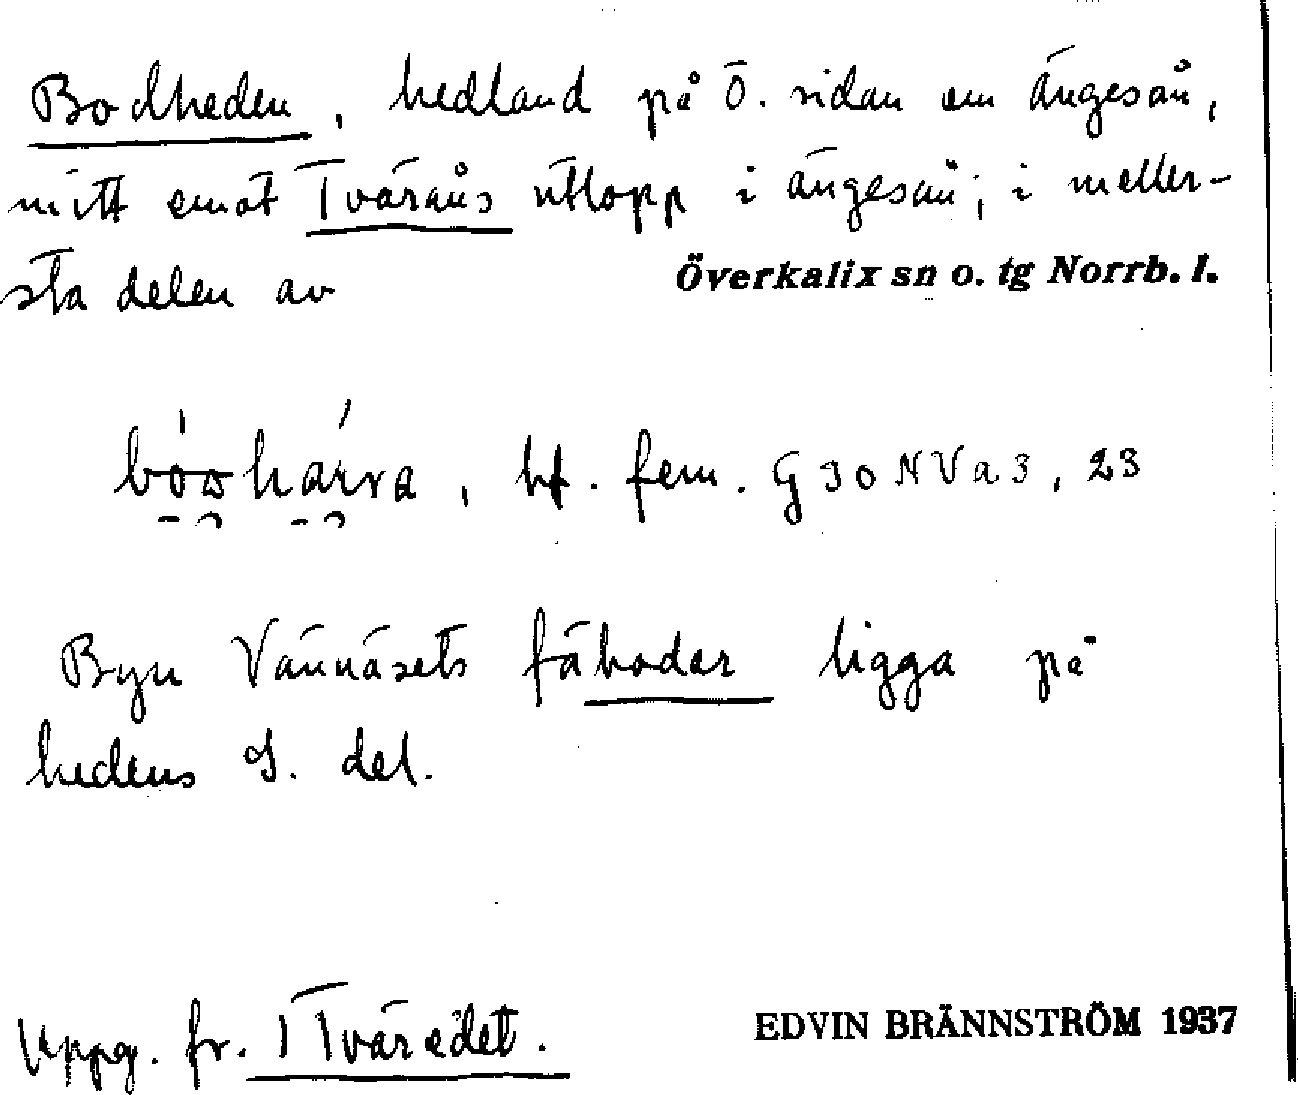 Bodheden, hedland på Ö. sidan om Ängesån,
mitt emot Tväråns utlopp i Ängesån; i meller-
sta delen av Överkalix sn o. tg Norrb. l.
hf. fem. G 30 N V a 3, 23
Byn Vännäsets fäbodar ligga på
hedens S. del.
Uppg. fr. Tväredet.
EDVIN BRÄNNSTRÖM 1937